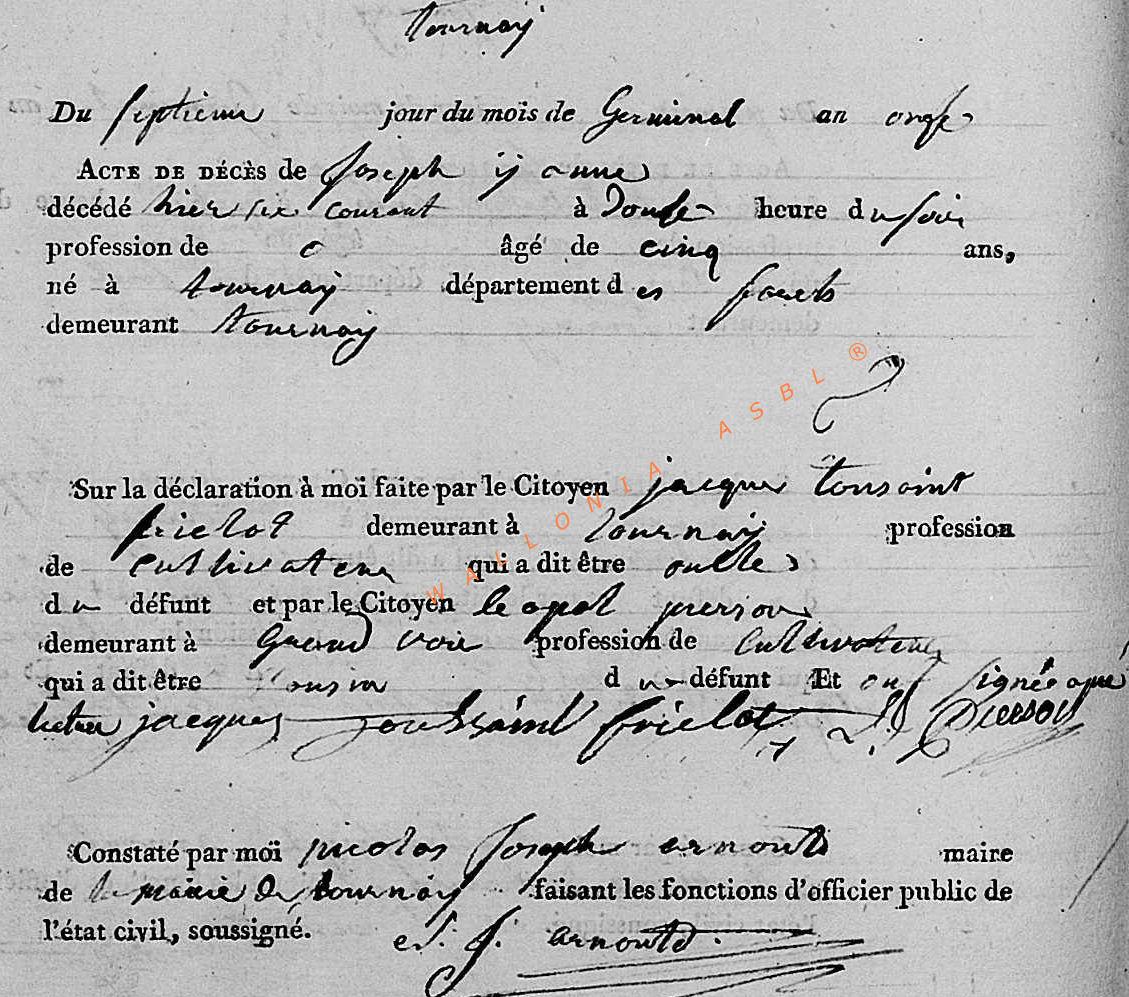 tournay
Du septieme jour du mois de Germinal an onze
ACTE DE DÉCÈS de Joseph
décédé hier six courant à Douse heure du soir
profession de o âgé de cinq ans,
né à tournay département des forets
demeurant tournay
WALLONIA ASBL ®
Sur la déclaration à moi faite par le Citoyen jacques tousaint
frielot demeurant à tournay profession
de cultivateur qui a dit être
du défunt et par le Citoyen leopol pierson
demeurant à Grand voir profession de cultivateur
qui a dit être cousin du défunt Et ont signée apré
lectur jacques joussaint frielot Pierson
Constaté par moi nicolas Joseph arnould maire
de la mairie De tournay faisant les fonctions d'officier public de
l'état civil, soussigné. N. J. arnould